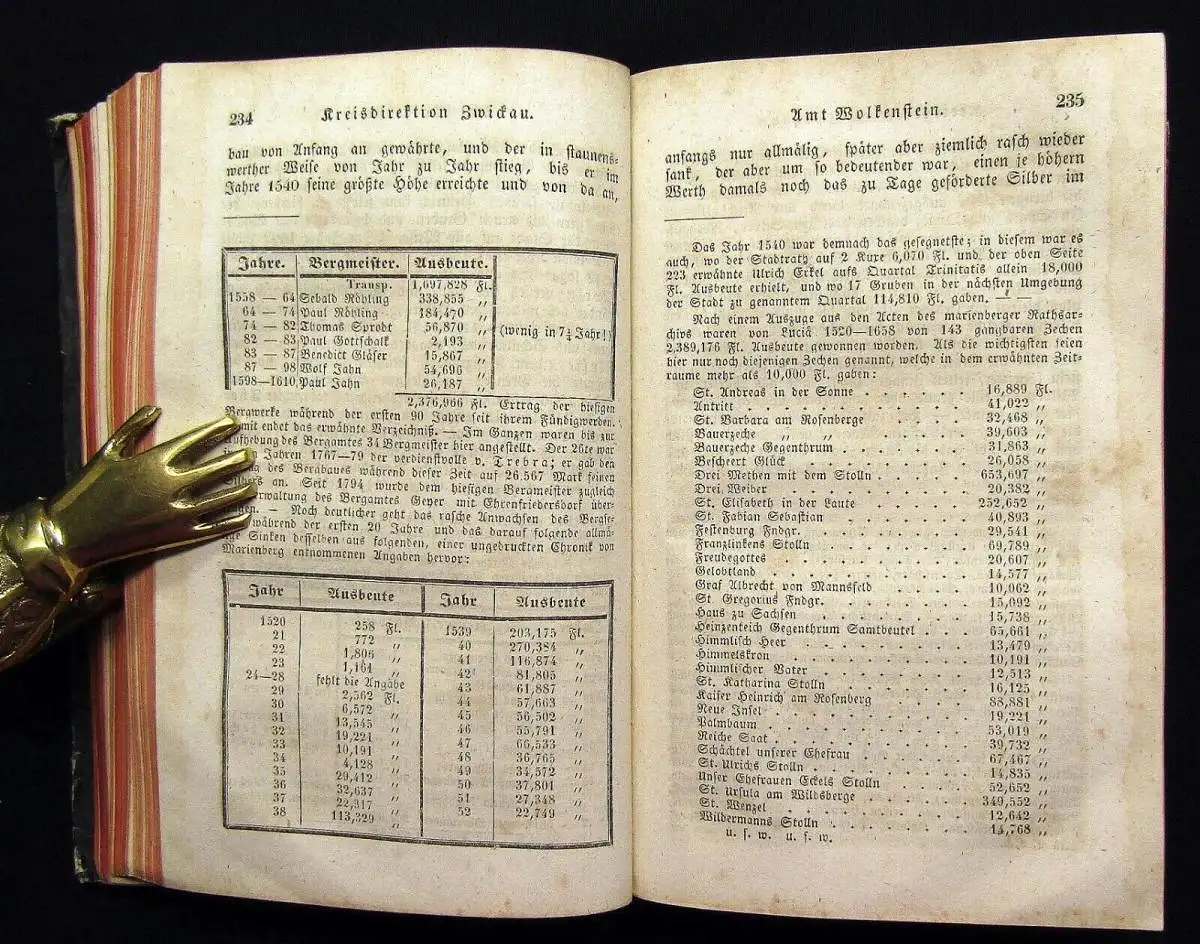 234 Kreisdirektion Zwickau.
bau von Anfang an gewährte, und der in staunens-
werther Weise von Jahr zu Jahr stieg, bis er im
Jahre 1540 seine größte Höhe erreichte und von da an,
Jahre. Bergmeister. Ausbeute.
Transp. 1,697,828 Fl.
1558 — 64 Sebald Röhling 338,855 „
64 — 74 Paul Röhling 184,470 „
74 — 82 Thomas Sprodt 56,870 „ (wenig in 7¼ Jahr!)
82 — 83 Paul Gottschalk 2,193 „
83 — 87 Benedict Gläser 15,867 „
87 — 98 Wolf Jahn 54,696 „
1598—1610 Paul Jahn 26,187 „
2,376,966 Fl. Ertrag der hiesigen
Bergwerke während der ersten 90 Jahre seit ihrem Fündigwerden.
mit endet das erwähnte Verzeichniß. — Im Ganzen waren bis zur
Aufhebung des Bergamtes 34 Bergmeister hier angestellt. Der 26te war
Jahren 1767—79 der verdienstvolle v. Trebra; er gab den
des Bergbaues während dieser Zeit auf 26,567 Mark feinen
an. Seit 1794 wurde dem hiesigen Bergmeister zugleich
erwaltung des Bergamtes Geyer mit Ehrenfriedersdorf über-
gen. — Noch deutlicher geht das rasche Anwachsen des Bergse-
während der ersten 20 Jahre und das darauf folgende allmä-
ge Sinken desselben aus folgenden, einer ungedruckten Chronik von
Marienberg entnommenen Angaben hervor:
Jahr Ausbeute Jahr Ausbeute
1520 258 Fl. 1539 203,175 Fl.
21 772 „ 40 270,384 „
22 1,806 „ 41 116,874 „
23 1,164 „ 42 81,805 „
24—28 fehlt die Angabe 43 61,887 „
29 2,562 Fl. 44 57,663 „
30 6,572 „ 45 56,502 „
31 13,545 „ 46 55,791 „
32 19,221 „ 47 66,533 „
33 10,191 „ 48 36,765 „
34 4,128 „ 49 34,572 „
35 29,412 „ 50 37,801 „
36 32,637 „ 51 27,348 „
37 22,317 „ 52 22,749 „
38 113,329 „
Amt Wolkenstein. 235
anfangs nur allmälig, später aber ziemlich rasch wieder
sank, der aber um so bedeutender war, einen je höhern
Werth damals noch das zu Tage geförderte Silber im
Das Jahr 1540 war demnach das gesegnetste; in diesem war es
auch, wo der Stadtrath auf 2 Kuxe 6,070 Fl. und der oben Seite
223 erwähnte Ulrich Erkel aufs Quartal Trinitatis allein 18,000
Fl. Ausbeute erhielt, und wo 17 Gruben in der nächsten Umgebung
der Stadt zu genanntem Quartal 114,810 Fl. gaben. — —
Nach einem Auszuge aus den Acten des marienberger Rathsar-
chivs waren von Luciä 1520—1658 von 143 gangbaren Zechen
2,389,176 Fl. Ausbeute gewonnen worden. Als die wichtigsten seien
hier nur noch diejenigen Zechen genannt, welche in dem erwähnten Zeit-
raume mehr als 10,000 Fl. gaben:
St. Andreas in der Sonne . . . . . . 16,889 Fl.
Antritt . . . . . . . . . . . 41,022 „
St. Barbara am Rosenberge . . . . . 32,468 „
Bauerzeche „ „ . . . . . 39,603 „
Bauerzeche Gegenthrum . . . . . . 31,863 „
Bescheert Glück . . . . . . . . . 26,058 „
Drei Methen mit dem Stolln . . . . . 653,697 „
Drei Weiber . . . . . . . . . . 20,382 „
St. Elisabeth in der Laute . . . . . 252,652 „
St. Fabian Sebastian . . . . . . . 40,893 „
Festenburg Fndgr. . . . . . . . . 29,541 „
Franzlinkens Stolln . . . . . . . 69,789 „
Freudegottes . . . . . . . . . . 20,607 „
Gelobtland . . . . . . . . . . 14,577 „
Graf Albrecht von Mannsfeld . . . . . 10,062 „
St Gregorius Fndgr. . . . . . . . 15,092 „
Haus zu Sachsen . . . . . . . . . 15,738 „
Heinzenteich Gegenthrum Samtbeutel . . . 65,661 „
Himmlisch Heer . . . . . . . . . 13,479 „
Himmelskron . . . . . . . . . . 10,191 „
Himmlischer Vater . . . . . . . . 12,513 „
St. Katharina Stolln . . . . . . . 16,125 „
Kaiser Heinrich am Rosenberg . . . . . 88,881 „
Neue Insel . . . . . . . . . . 19,221 „
Palmbaum . . . . . . . . . . . 53,019 „
Reiche Saat . . . . . . . . . . 39,732 „
Schächtel unserer Ehefrau . . . . . . 67,467 „
St. Ulrichs Stolln . . . . . . . . 14,835 „
Unser Ehefrauen Eckels Stolln . . . . . 52,652 „
St. Ursula am Wildsberge . . . . . . 349,552 „
St. Wenzel . . . . . . . . . . 12,642 „
Wildermanns Stolln . . . . . . . . 14,768 „
u. s. w. u. s. w.